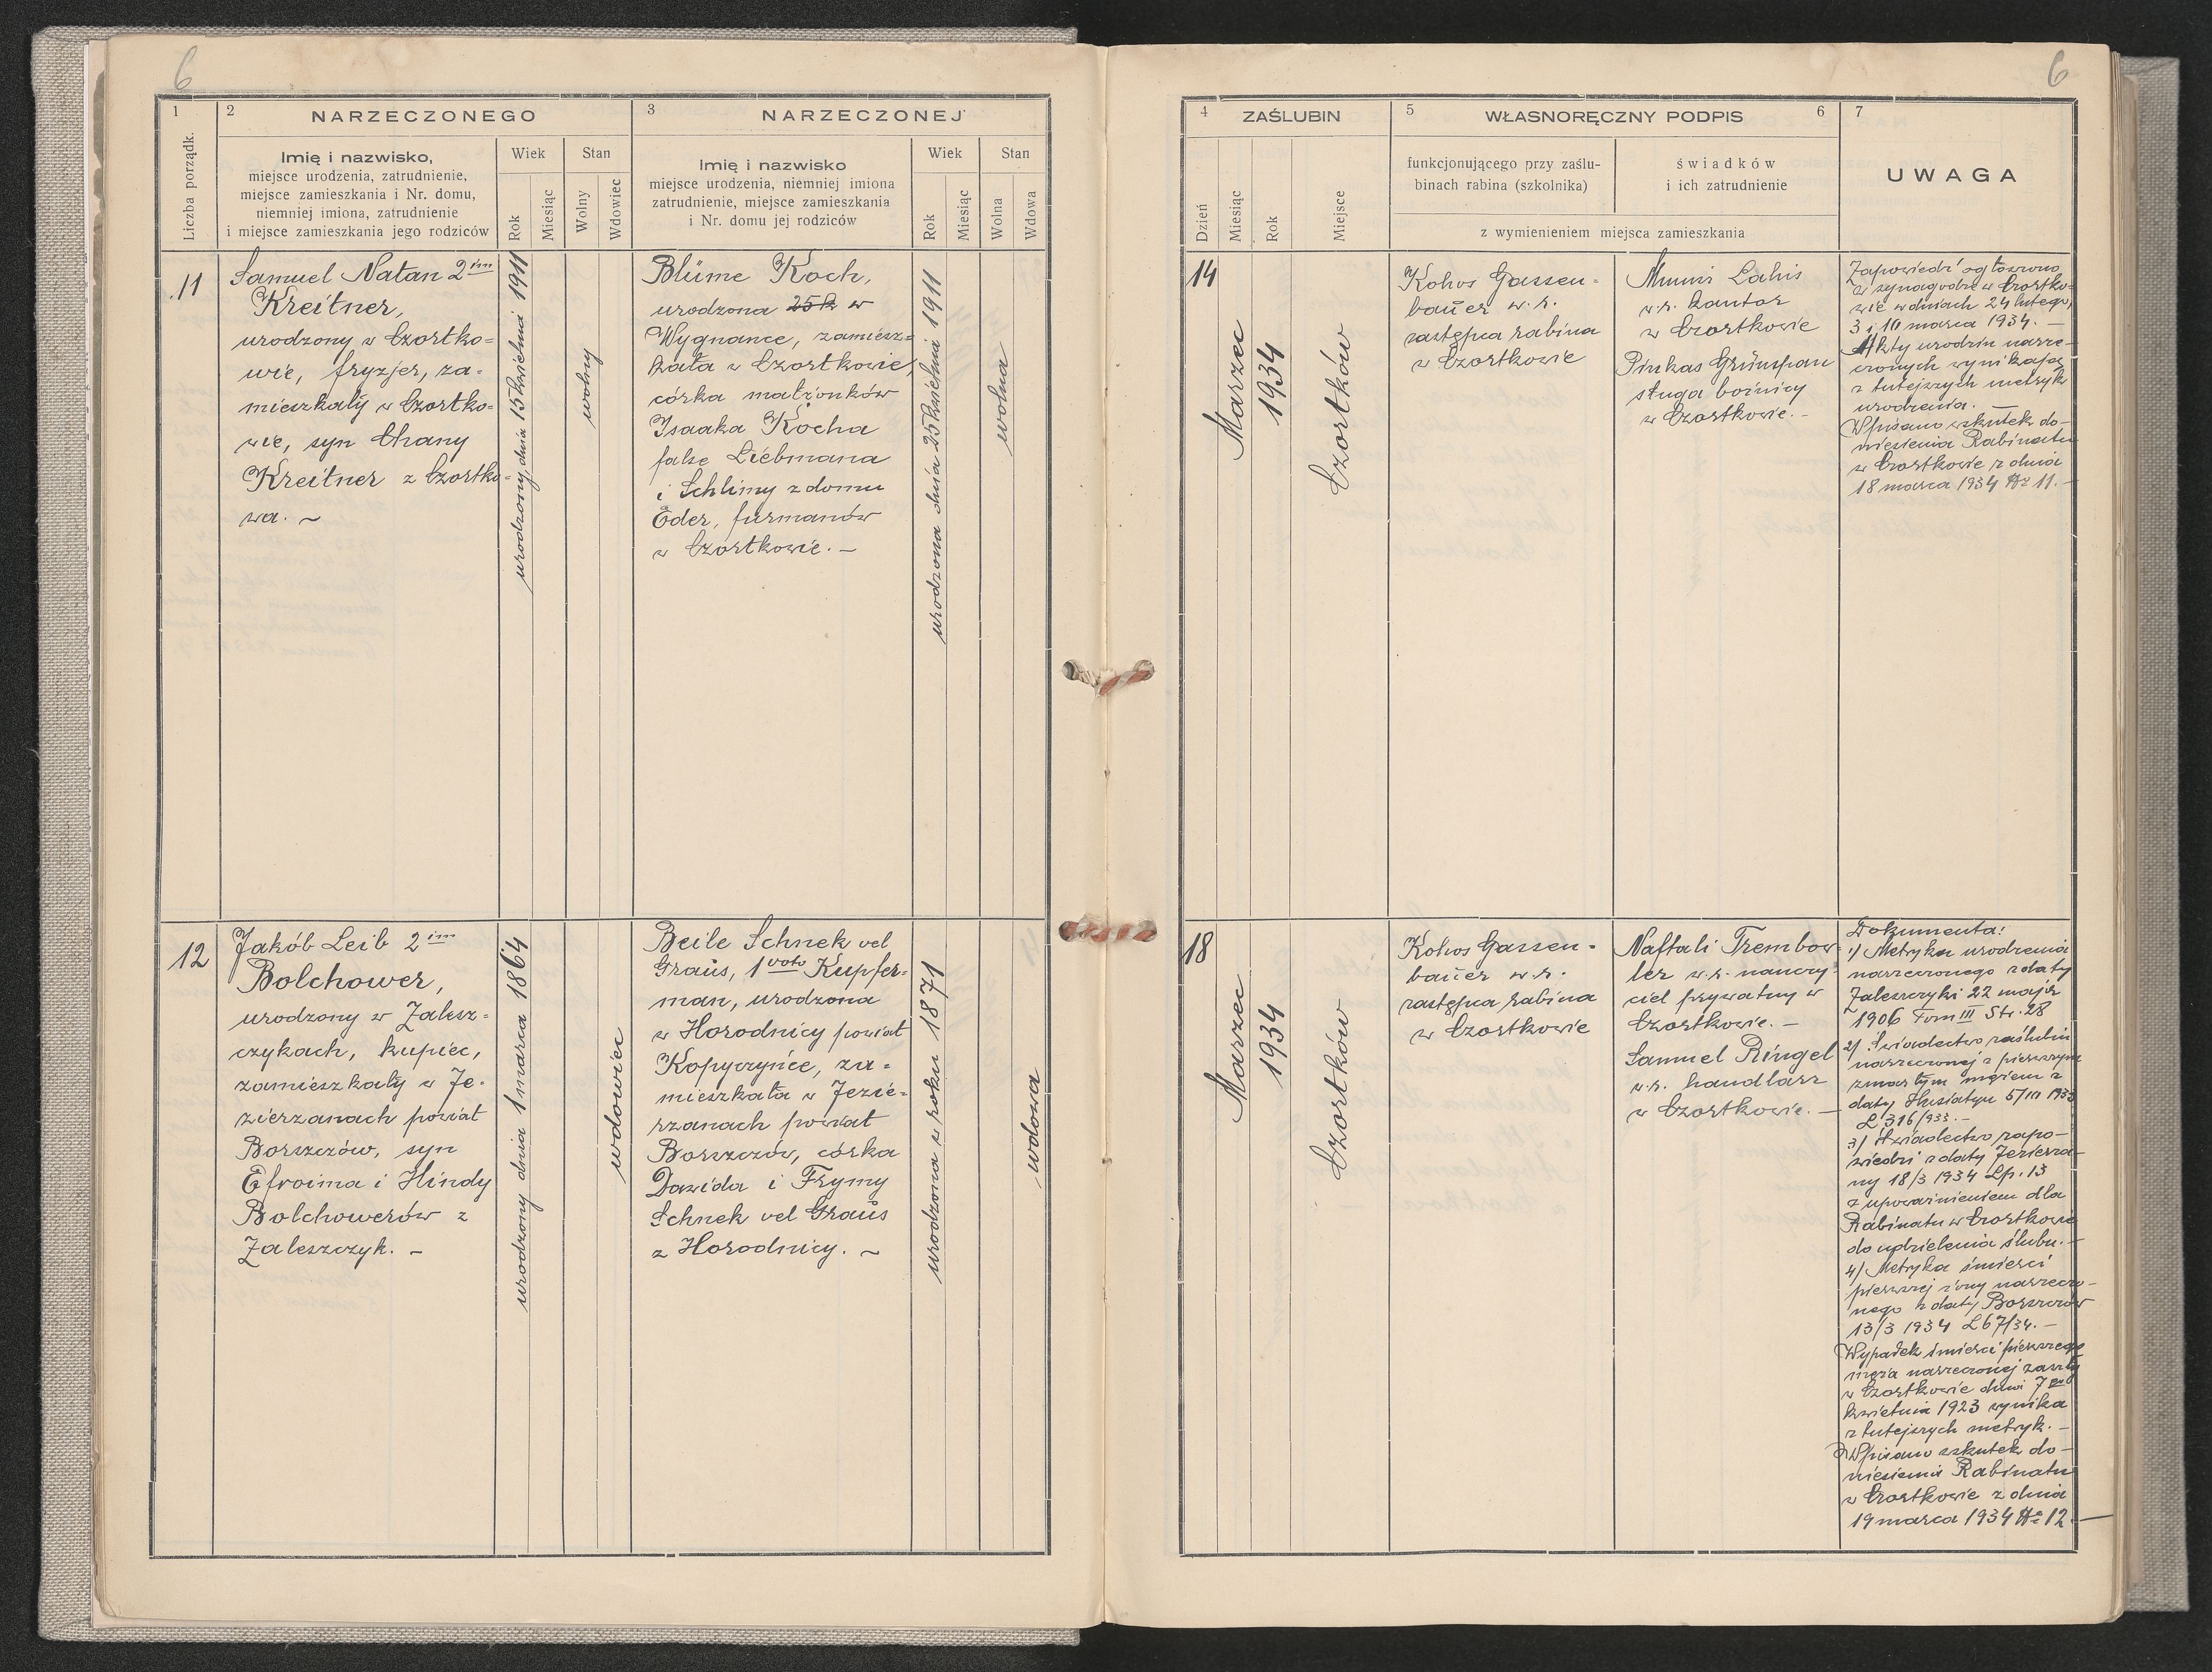 6
6
1
2 NARZECZONEGO
Imię i nazwisko,
miejsce urodzenia, zatrudnienie,
miejsce zamieszkania i Nr. domu,
niemniej imiona, zatrudnienie
i miejsce zamieszkania jego rodziców
Liczba porządk.
Wiek
Rok
Miesiąc
Stan
Wolny
Wdowiec
3 NARZECZONEJ
Imię i nazwisko
miejsce urodzenia, niemniej imiona
zatrudnienie, miejsce zamieszkania
i Nr. domu jej rodziców
Wiek
Rok
Miesiąc
Stan
Wolna
Wdowa
4 ZAŚLUBIN
Dzień
Miesiąc
Rok
Miejsce
5 WŁASNORĘCZNY PODPIS 6
funkcjonującego przy zaślu-
binach rabina (szkolnika)
świadków
i ich zatrudnienie
z wymienieniem miejsca zamieszkania
7
UWAGA
11
Samuel Natan 2 im
Kreitner,
urodzony w Czortko-
wie, fryzjer, za-
mieszkały w Czortko-
wie, syn Chany
Kreitner z Czortko-
wa. ~
urodzony dnia 15 kwietnia 1911
wolny
Blüme Koch,
urodzona 25 k w
Wygnance, zamiesz-
kała w Czortkowie,
córka małżonków
Isaaka Kocha
false Liebmana
i Schlimy z domu
Eder, furmanów
w Czortkowie. —
urodzona dnia 25 kwietnia 1911
wolna
14
Marzec
1934
Czortków
Kohos Gassen-
bauer w.r.
zastępca rabina
w Czortkowie
Munni Lahis
w.r. kantor
w Czortkowie
Pinkas Grünspan
sługa bożnicy
w Czortkowie. -
Zapowiedzi ogłoszono
w synagodze w Czortko-
wie w dniach 24 lutego,
3 i 10 marca 1934. —
Akty urodzin narze-
czonych wynikają
z tutejszych metryk
urodzenia.
Wpisano wskutek do-
niesienia Rabinatu
w Czortkowie z dnia
18 marca 1934 № 11. -
12
Jakób Leib 2 im
Bolchower,
urodzony w Zalesz-
czykach, kupiec,
zamieszkały w Je-
zierzanach powiat
Borszczów, syn
Efroima i Hindy
Bolchowerów z
Zaleszczyk. —
urodzony dnia 1 marca 1864
wdowiec
Beile Schnek vel
Graus, 1 voto Kupfer-
man, urodzona
w Horodnicy powiat
Kopyczyńce, za-
mieszkała w Jezie-
rzanach powiat
Borszczów, córka
Dawida i Frymy
Schnek vel Graus
z Horodnicy. ~
urodzona w roku 1871
wdowa
18
Marzec
1934
Czortków
Kohos Gassen-
bauer w.r.
zastępca rabina
w Czortkowie
Naftali Trembow-
ler w.r. nauczy-
ciel prywatny w
Czortkowie. —
Samuel Ringel
w.r. handlarz
w Czortkowie. —
Dokumenta:
1) Metryka urodzenia
narzeczonego z daty
Zaleszczyki 22 maja
1906 Tom III Str. 28
2) Świadectwo zaślubin
narzeczonej z pierwszym
zmarłym mężem z
daty Husiatyn 5/III 1933
L 316/933. —
3) Świadectwo zapo-
wiedzi z daty Jezierza-
ny 18/3 1934 Lp. 13
z upoważnieniem dla
Rabinatu w Czortkowie
do udzielenia ślubu. —
4) Metryka śmierci
pierwszej żony narzeczo-
nego z daty Borszczów
13/3 1934 L 67/34. —
Wypadek śmierci pierwszego
męża narzeczonej zaszły
w Czortkowie dnia 7 go
kwietnia 1923 wynika
z tutejszych metryk. —
Wpisano wskutek do-
niesienia Rabinatu
w Czortkowie z dnia
19 marca 1934 № 12. —